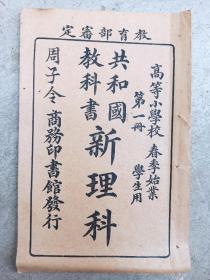 教育部審定
高等小學校 春季始業
第一冊 學生用
共和國
教科書
新理科
周子令 商務印書館發行